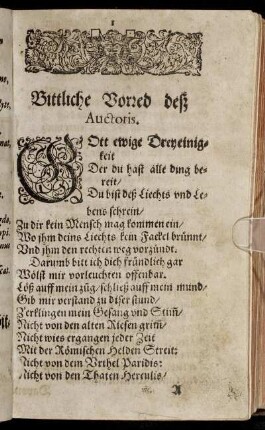 1
Bittliche Vorred deß
Auctoris.
GOtt ewige Dreyeinig-
keit
Der du hast alle ding be-
reit/
Du bist deß Liechts vnd Le-
bens schrein/
Zu dir kein Mensch mag kommen ein/
Wo jhm deins Liechts kein Fackel brünnt/
Vnd jhm den rechten weg vorzündt.
Darumb bitt ich dich fründlich gar
Wölst mir vorleuchten offenbar.
Löß auff mein züg/schließ auff mein mund/
Gib mir verstand zu diser stund/
Zerklingen mein Gesang vnd Stiñ/
Nicht von den alten Riesen griñ/
Nicht wies ergangen jeder Zeit
Mit der Römischen Helden Streit:
Nicht von dem Vrthel Paridis:
Nicht von den Thaten Herculis/
A